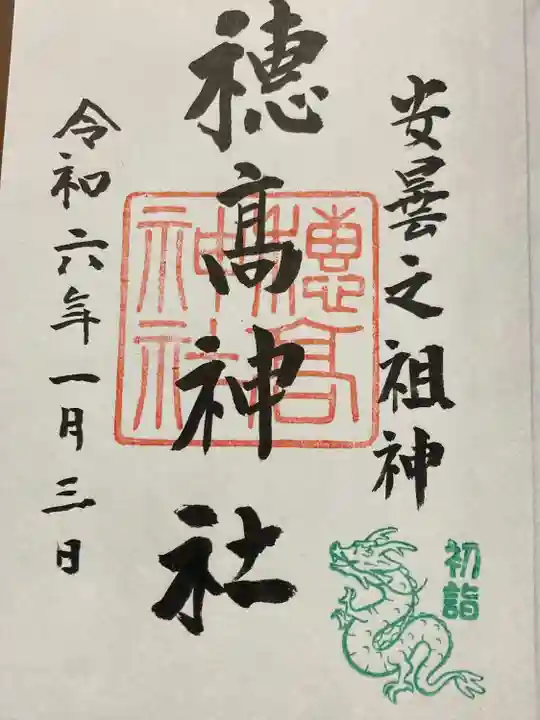 安曇之祖神
穂髙神社
令和六年一月三日
穂高
神社
初詣